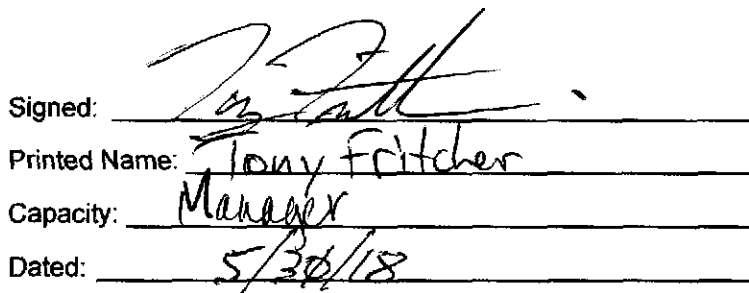 Signed:
Printed Name: Tony Fritcher
Capacity: Manager
Dated: 5/30/18